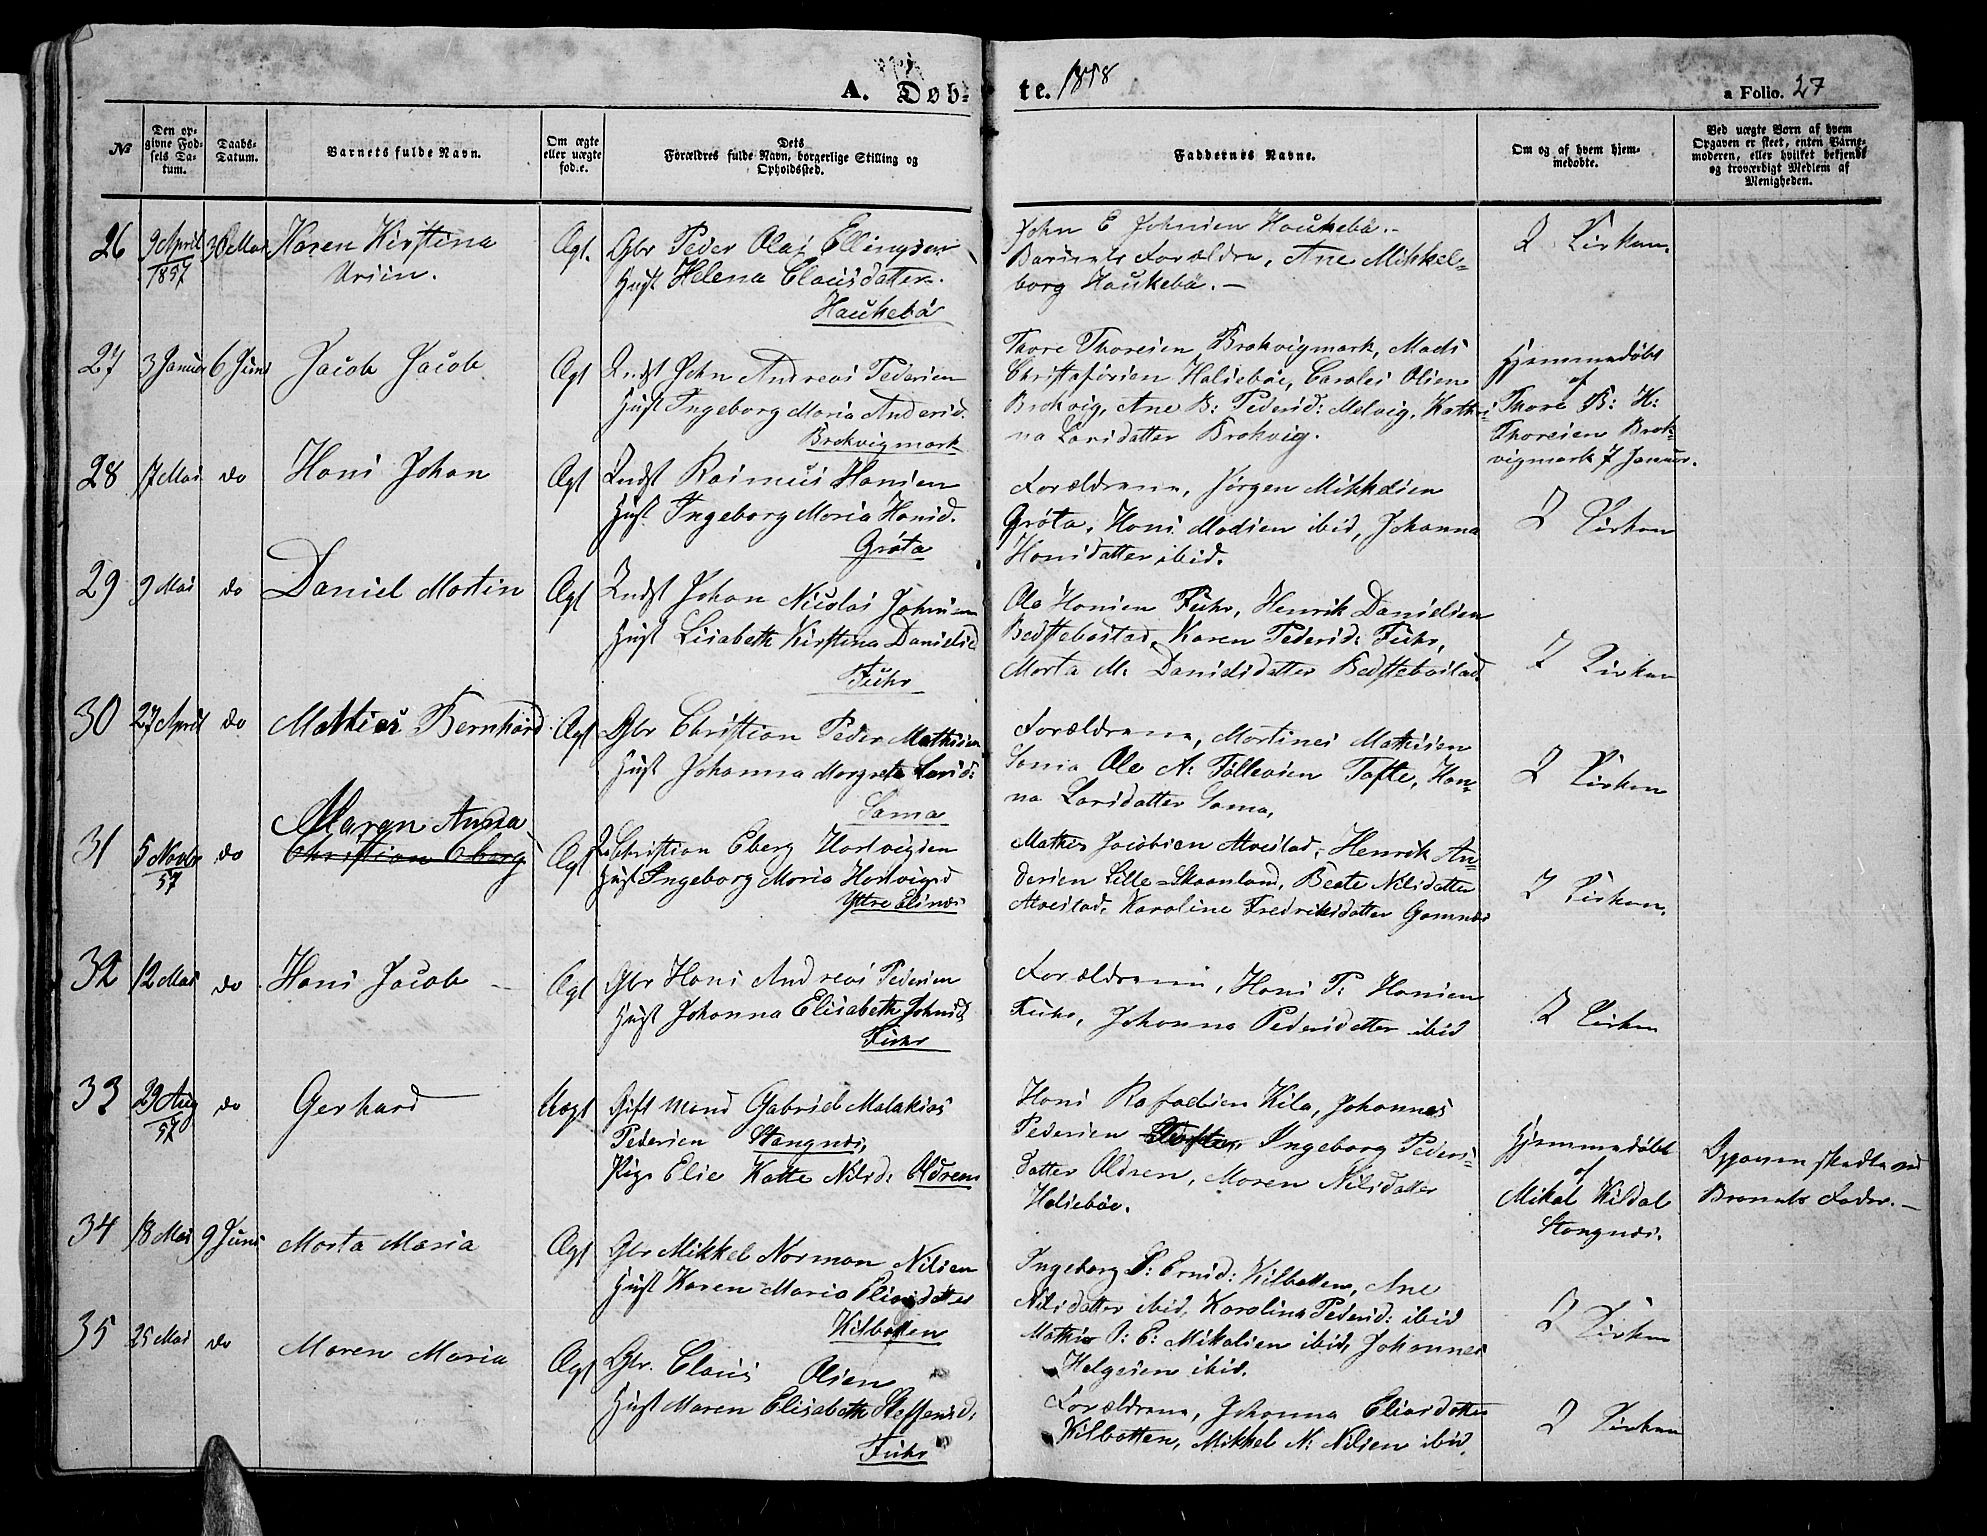 A. Døb-
te. 1858
a Folio. 27
№
Den opgivne Fødsels Datum.
Daabs-Datum.
Barnets fulde Navn.
Om ægte eller uægte fød.e.
Dets Forældres fulde Navn, borgerlige Stilling og Opholdssted.
Faddernes Navne.
Om og af hvem hjemmedøbte.
Ved uægte Børn af hvem Opgaven er skeet, enten Barnemoderen, eller hvilket bekjendt og troværdigt Medlem af Menigheden.
26 9 April 1857 30 Mai Karen Kirstina Ægt. Gbr Peder Olai Ellingsen
Hust Helena Clausdatter.
Haukebø
John E Johnsen Haukebø.
Barnets Forældre, Ane Mikkels-
borg Haukebø. —
I Kirken.
27 3 Januar 6 Juni Jacob Jacob Ægt Indst John Andreas Pedersen
Hust Ingeborg Maria Andersd.
Brokvigmark
Thore Thoresen Brokvigmark, Mads
Christofersen Halsebøe, Carolus Olsen
Brokvig, Ane B: Pedersd: Melvig, Kathri-
na Larsdatter Brokvig.
Hjemmedøbt
af
Thore B: H:
Thoresen Brok-
vigmark 7 Januar.
28 17 Mai do Hans Johan Ægt Indst Rasmus Hansen
Hust Ingeborg Maria Hansd.
Grøta
Forældrene, Jørgen Mikkelsen
Grøta, Hans Madsen ibid, Johanna
Hansdatter ibid.
I Kirken
29 9 Mai do Daniel Martin Ægt Indst Johan Nicolai Johnsen
Hust Lisabeth Kirstina Danielsd
Fuhr
Ole Hansen Fuhr, Henrik Danielsen
Bedstebostad, Karen Pedersd: Fuhr,
Marta M: Danielsdatter Bedstebostad
I Kirken
30 27 April do Mathias Bernhard Ægt Gbr Christian Peder Mathisen
Hust Johanna Margreta Larsd:
Sama
Forældrene, Martines Mathisen
Sama Ole A: Tollevsen Tofte, Han-
na Larsdatter Sama,
I Kirken
Maren Anna
31 5 Novbr 57 do Christian Eberg Ægt Christian Eberg Hartvigsen
Hust Ingeborg Maria Hartvigsd
Yttre Elsnæs
Mathis Jacobsen Alvestad, Henrik An-
dersen Lille-Skaanland, Beate Nilsdatter
Alvestad, Karoline Fredriksdatter Gamnæs
I Kirken.
32 12 Mai do Hans Jacob — Ægt Gbr Hans Andreas Pedersen
Hust Johanna Elisabeth Johnsd
Fuhr
Forældrene, Hans P: Hansen
Fuhr, Johanna Pedersdatter ibid
I Kirken
33 23 Aug 57 do Gerhard Uægt Gift Mand Gabriel Malakias
Pedersen Stangnæs,
Pige Elie Katte Nilsd: Oldren
Hans Rafaelsen Kila, Johannes
Pedersen Ingeborg Peders-
datter Oldren, Maren Nilsdatter
Halsebøe.
Hjemmedøbt
af
Mikal Kildal
Stangnæs.
Opgaven skedte ved
Barnets Fader. —
34 18 Mai 9 Juni Marta Maria Ægt Gbr Mikkel Norman Nilsen
Hust Karen Maria Eliasdatter
Kilbotten
Ingeborg E: Ernsd: Kilbotten, Ane
Nilsdatter ibid, Karolina Pedersd: ibid
Mathis P: E: Mikalsen ibid, Johannes
Helgesen ibid.
I Kirken
35 25 Mai do Maren Maria Ægt Gbr. Claus Olsen
Hust Maren Elisabeth Steffensd.
Fuhr
Forældrene, Johanna Eliasdatter
Kilbotten, Mikkel N: Nilsen ibid.
I Kirken